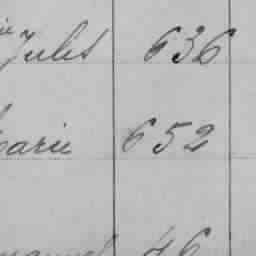 Jules 636
Marie 652
46